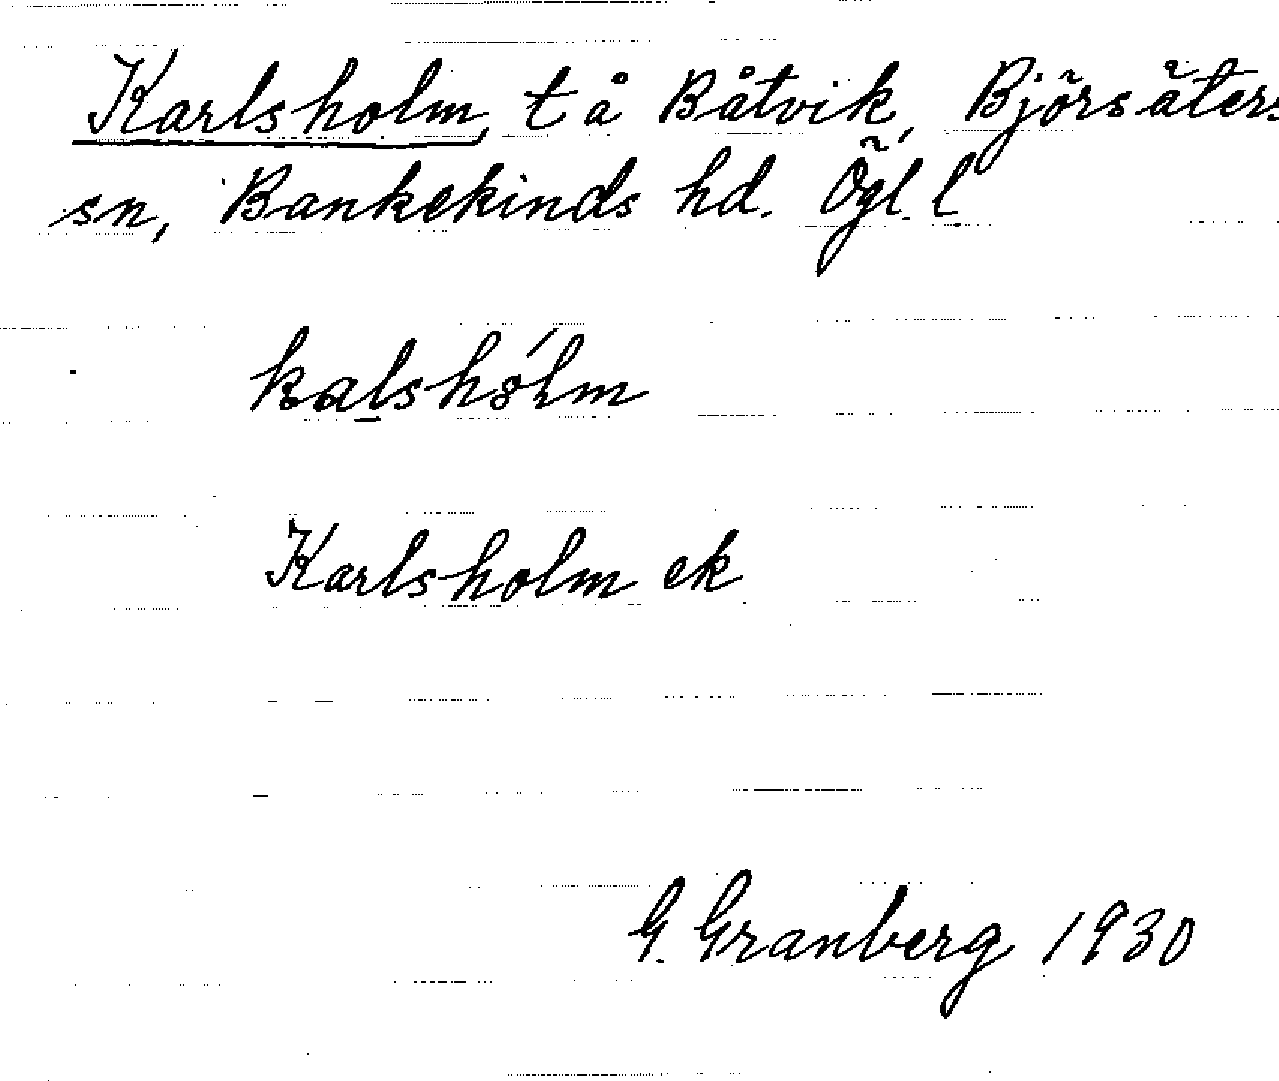 Karlsholm, t å Båtvik, Björsäters
sn, Bankekinds hd. Ögl. l.
kalshólm
Karlsholm ek
G. Granberg 1930